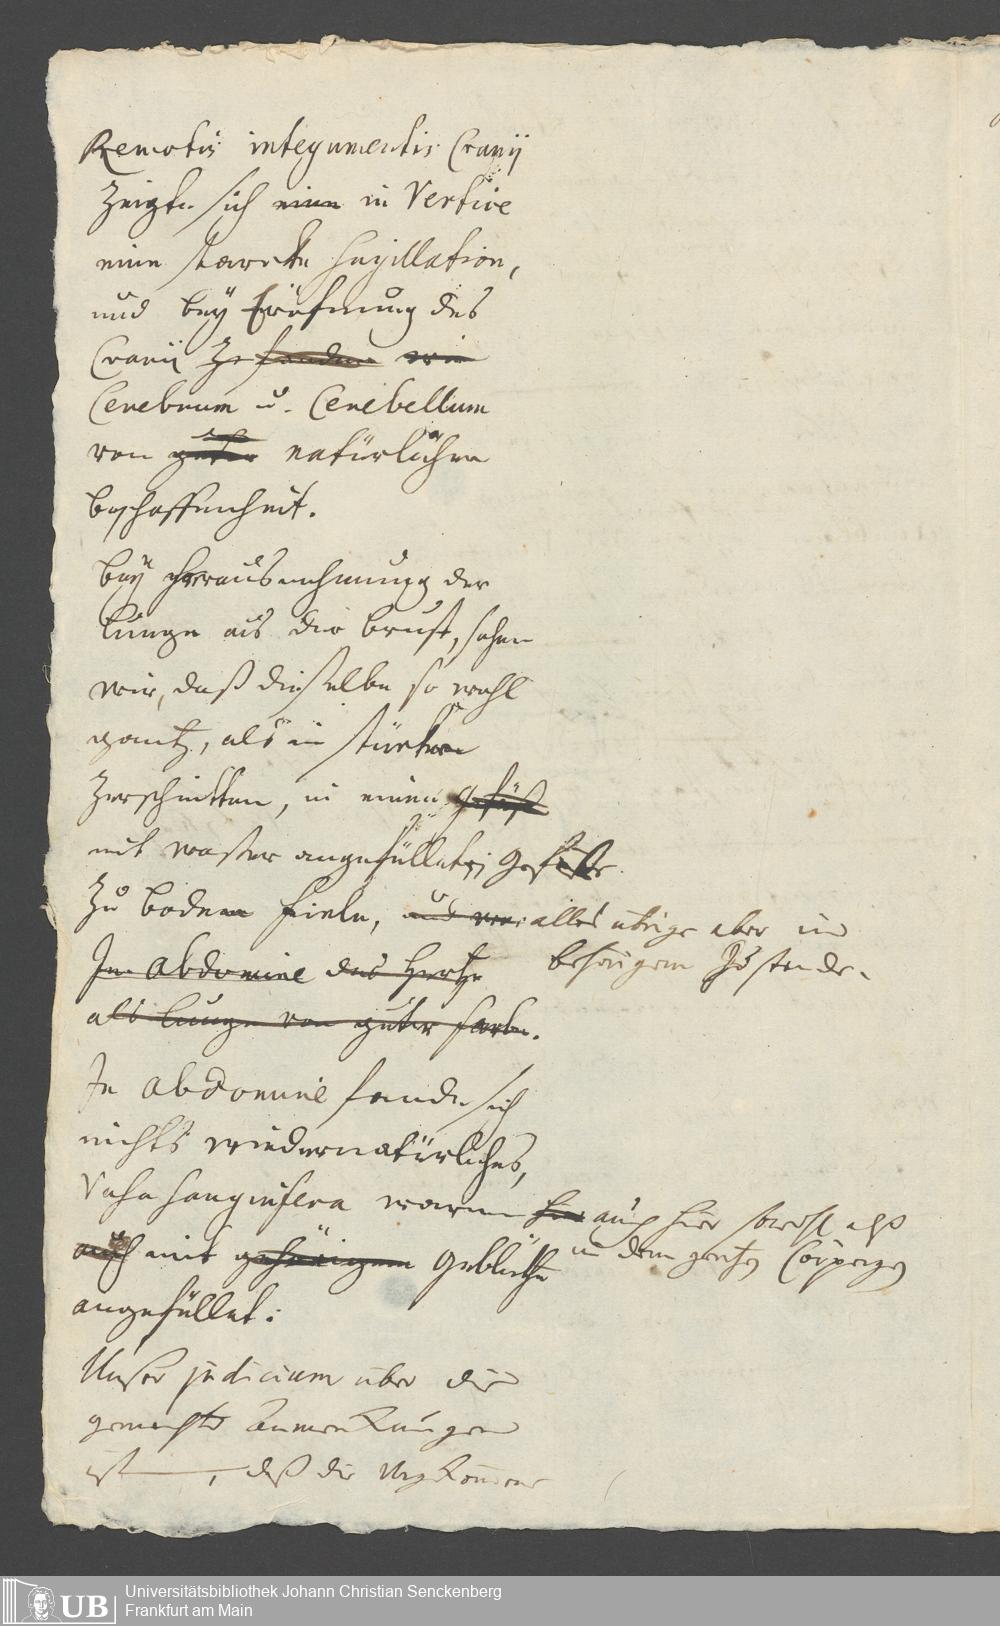 Remotis integumentis Cranij
zeigte sich eine in Vertice
eine starcke Sugillation,
und bey Eröfnung des
Cranij fanden wir
Cerebrum u. Cerebellum
von guter natürlichen
beschaffenheit.
bey herausnehmung der
Lunge aus der brust, sahen
wir, daß dieselbe so wohl
gantz, als in stücken
zerschnitten, in einen gefäß
mit waßer angefülleten gefäße
zu boden fiele, und war alles übrige aber im
behörigem Zustande.
In Abdomine das Hertze
als Lunge von guter farbe.
In Abdomine fande sich
nichts wiedernatürliches,
Vasa sanguifera waren hier auch hier sowohl als
in dem gantzen Cörper
auch mit gehörigem Geblüthe
angefüllet.
Unser judicium über die
gemachte Anmerkungen
ist, daß die
UB Universitätsbibliothek Johann Christian Senckenberg
Frankfurt am Main